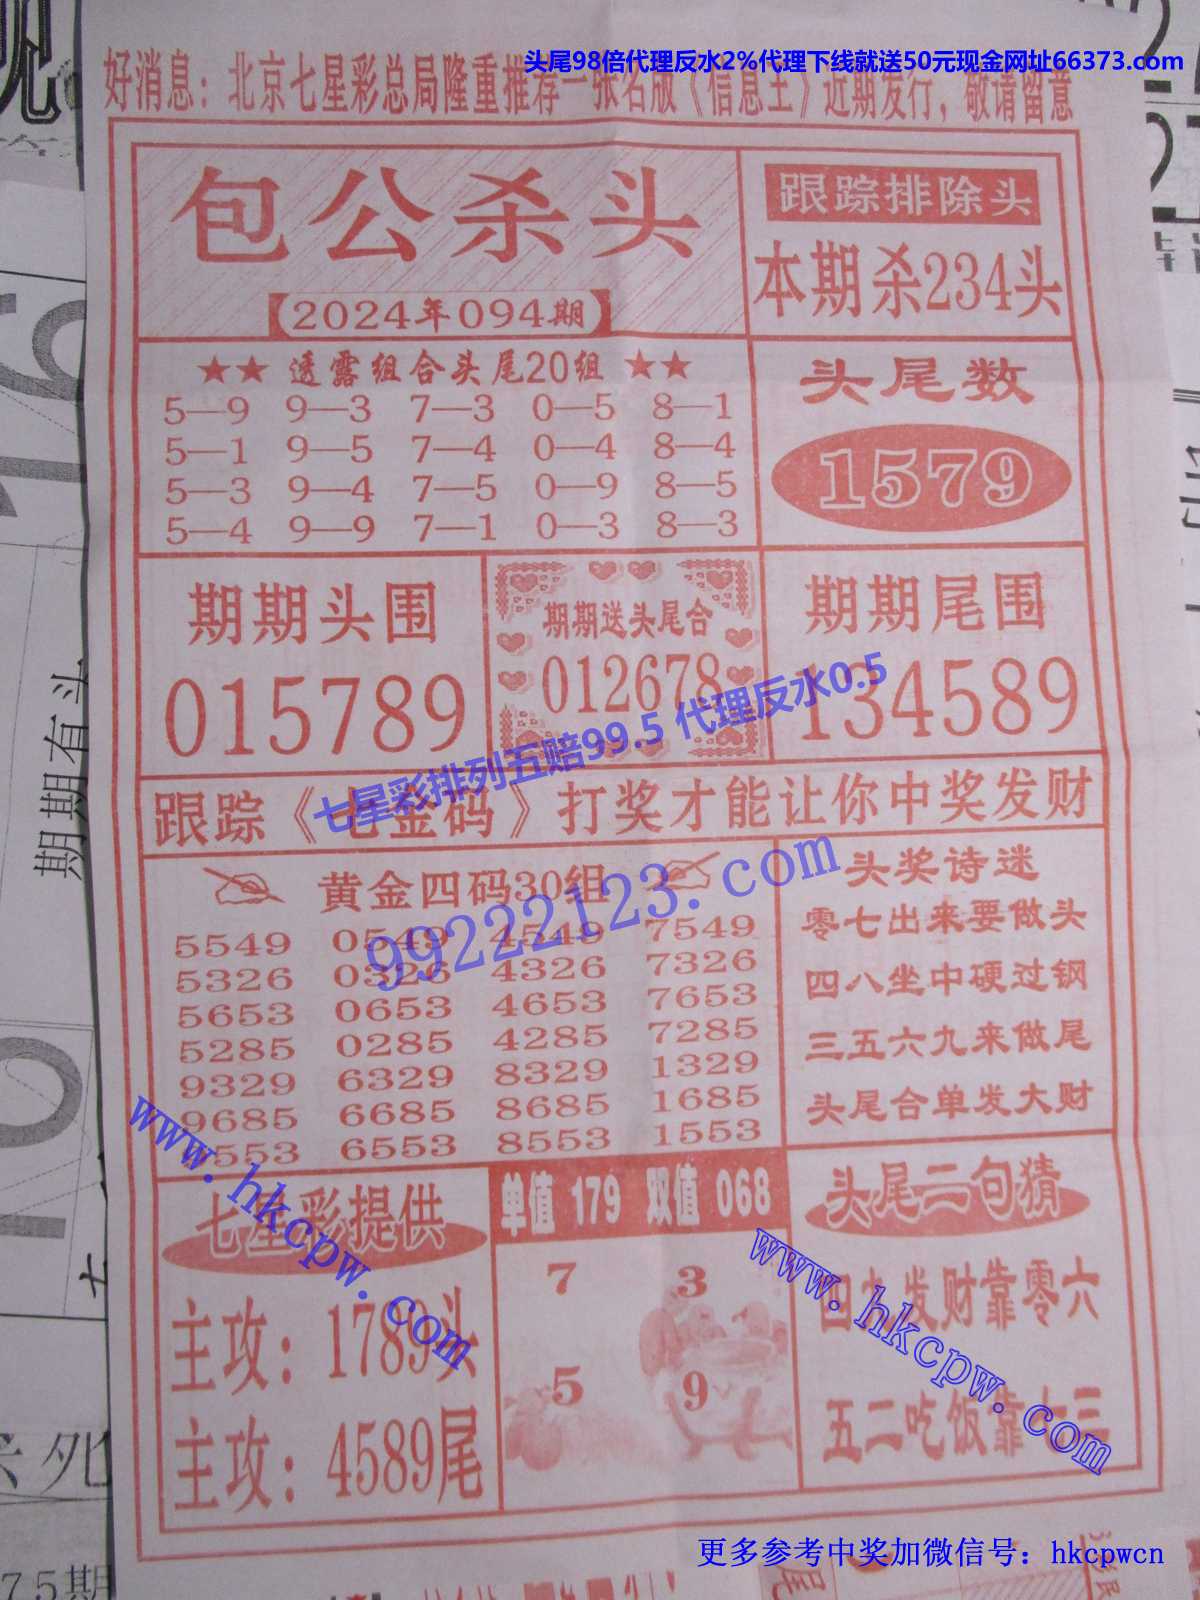 头尾98倍代理反水2%代理下线就送50元现金网址66373.com
好消息：北京七星彩总局隆重推荐一张名版《信息王》近期发行，敬请留意
包公杀头
【2024年094期】
跟踪排除头
本期杀234头
★★ 透露组合头尾20组 ★★
5—9 9—3 7—3 0—5 8—1
5—1 9—5 7—4 0—4 8—4
5—3 9—4 7—5 0—9 8—5
5—4 9—9 7—1 0—3 8—3
头尾数
1579
期期头围
015789
期期送头尾合
012678
期期尾围
134589
七星彩排列五赔99.5 代理反水0.5
跟踪《七金码》打奖才能让你中奖发财
99222123.com
黄金四码30组
5549 0549 4549 7549
5326 0326 4326 7326
5653 0653 4653 7653
5285 0285 4285 7285
9329 6329 8329 1329
9685 6685 8685 1685
553 6553 8553 1553
头奖诗迷
零七出来要做头
四八坐中硬过钢
三五六九来做尾
头尾合单发大财
www.hkcpw.com
七星彩提供
主攻：1789头
主攻：4589尾
单值 179 双值 068
7 3
5 9
头尾二句猜
www.hkcpw.com
发财靠零六
五二吃饭靠七三
期期有头
75期
更多参考中奖加微信号：hkcpwcn